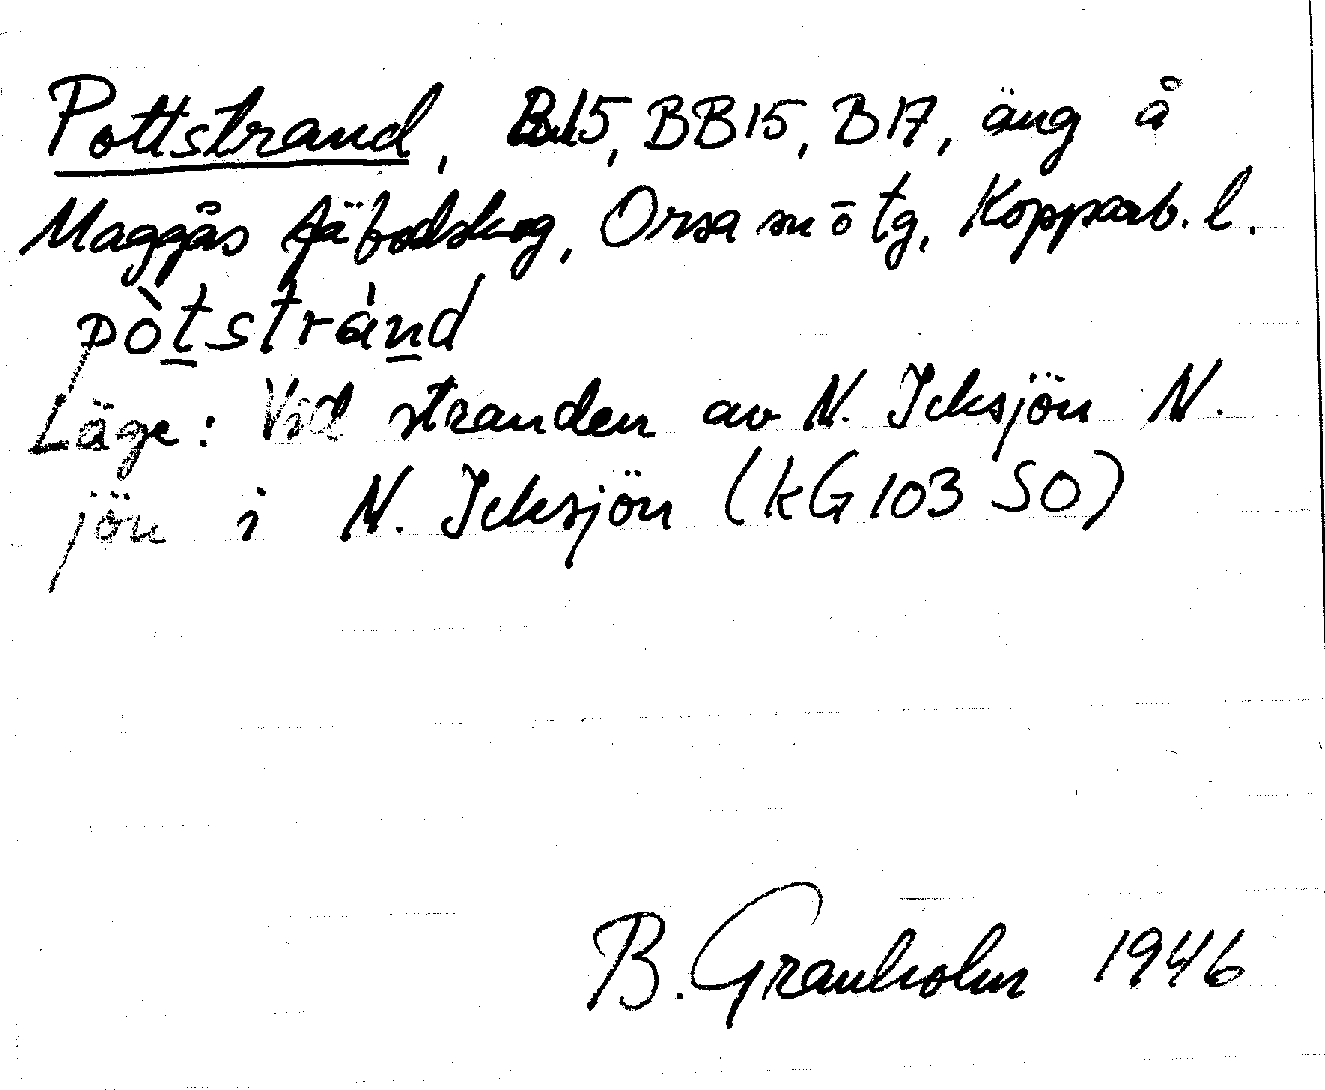 Pottstrand, B15, BB15, B17, äng å
Maggås fäbodskog, Orsa sn ō tg, Kopparb. l.
pòtstrànd
Läge: Vid stranden av N. Icksjön N.
jön i N. Icksjön (kG 103 SO)
B. Granholm 1946